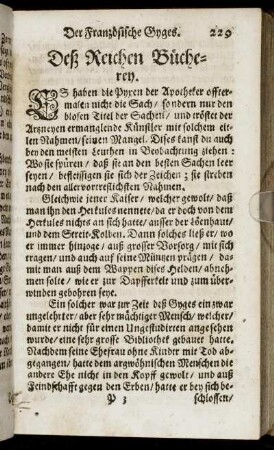 Der Französische Gyges. 229
Deß Reichen Büche-
rey.
ES haben die Pyxen der Apotheker offter-
malen nicht die Sach / sondern nur den
blosen Titel der Sachen / und tröstet der
Artzneyen ermanglende Künstler mit solchem eit-
len Nahmen / seinen Mangel. Dises kanst du auch
bey den meisten Leuthen in Beobachtung ziehen:
Wo sie spüren / daß sie an den besten Sachen leer
seyen / befleissigen sie sich der Zeichen / sie streben
nach den allervortrefflichsten Nahmen.
Gleichwie jener Kaiser / welcher gewolt / daß
man ihn den Hertules nennete / da er doch von dem
Hertules nichts an sich hatte / ausser der Löenhaut /
und dem Streit-Kolben. Dann solches ließ er / wo
er immer hinzoge / auß grosser Vorsorg / mir sich
tragen / und auch auf seine Müntzen prägen / da-
mit man auß dem Wappen dises Helden / abneh-
men solte / wie er zur Dapfferkeit und zum über-
winden gebohren seye.
Ein solcher war zur Zeit deß Gyges ein zwar
ungelehrter / aber sehr mächtiger Mensch / welcher /
damit er nicht für einen Ungestudirten angesehen
wurde / eine sehr grosse Bibliothek gebauet hatte.
Nachdem seine Ehefrau ohne Kinder mit Tod ab-
gegangen / hatte dem argwöhnischen Menschen die
andere Ehe nicht in den Kopff gewolt / und auß
Feindschafft gegen den Erben / hatte er bey sich be-
P 3 schlossen /